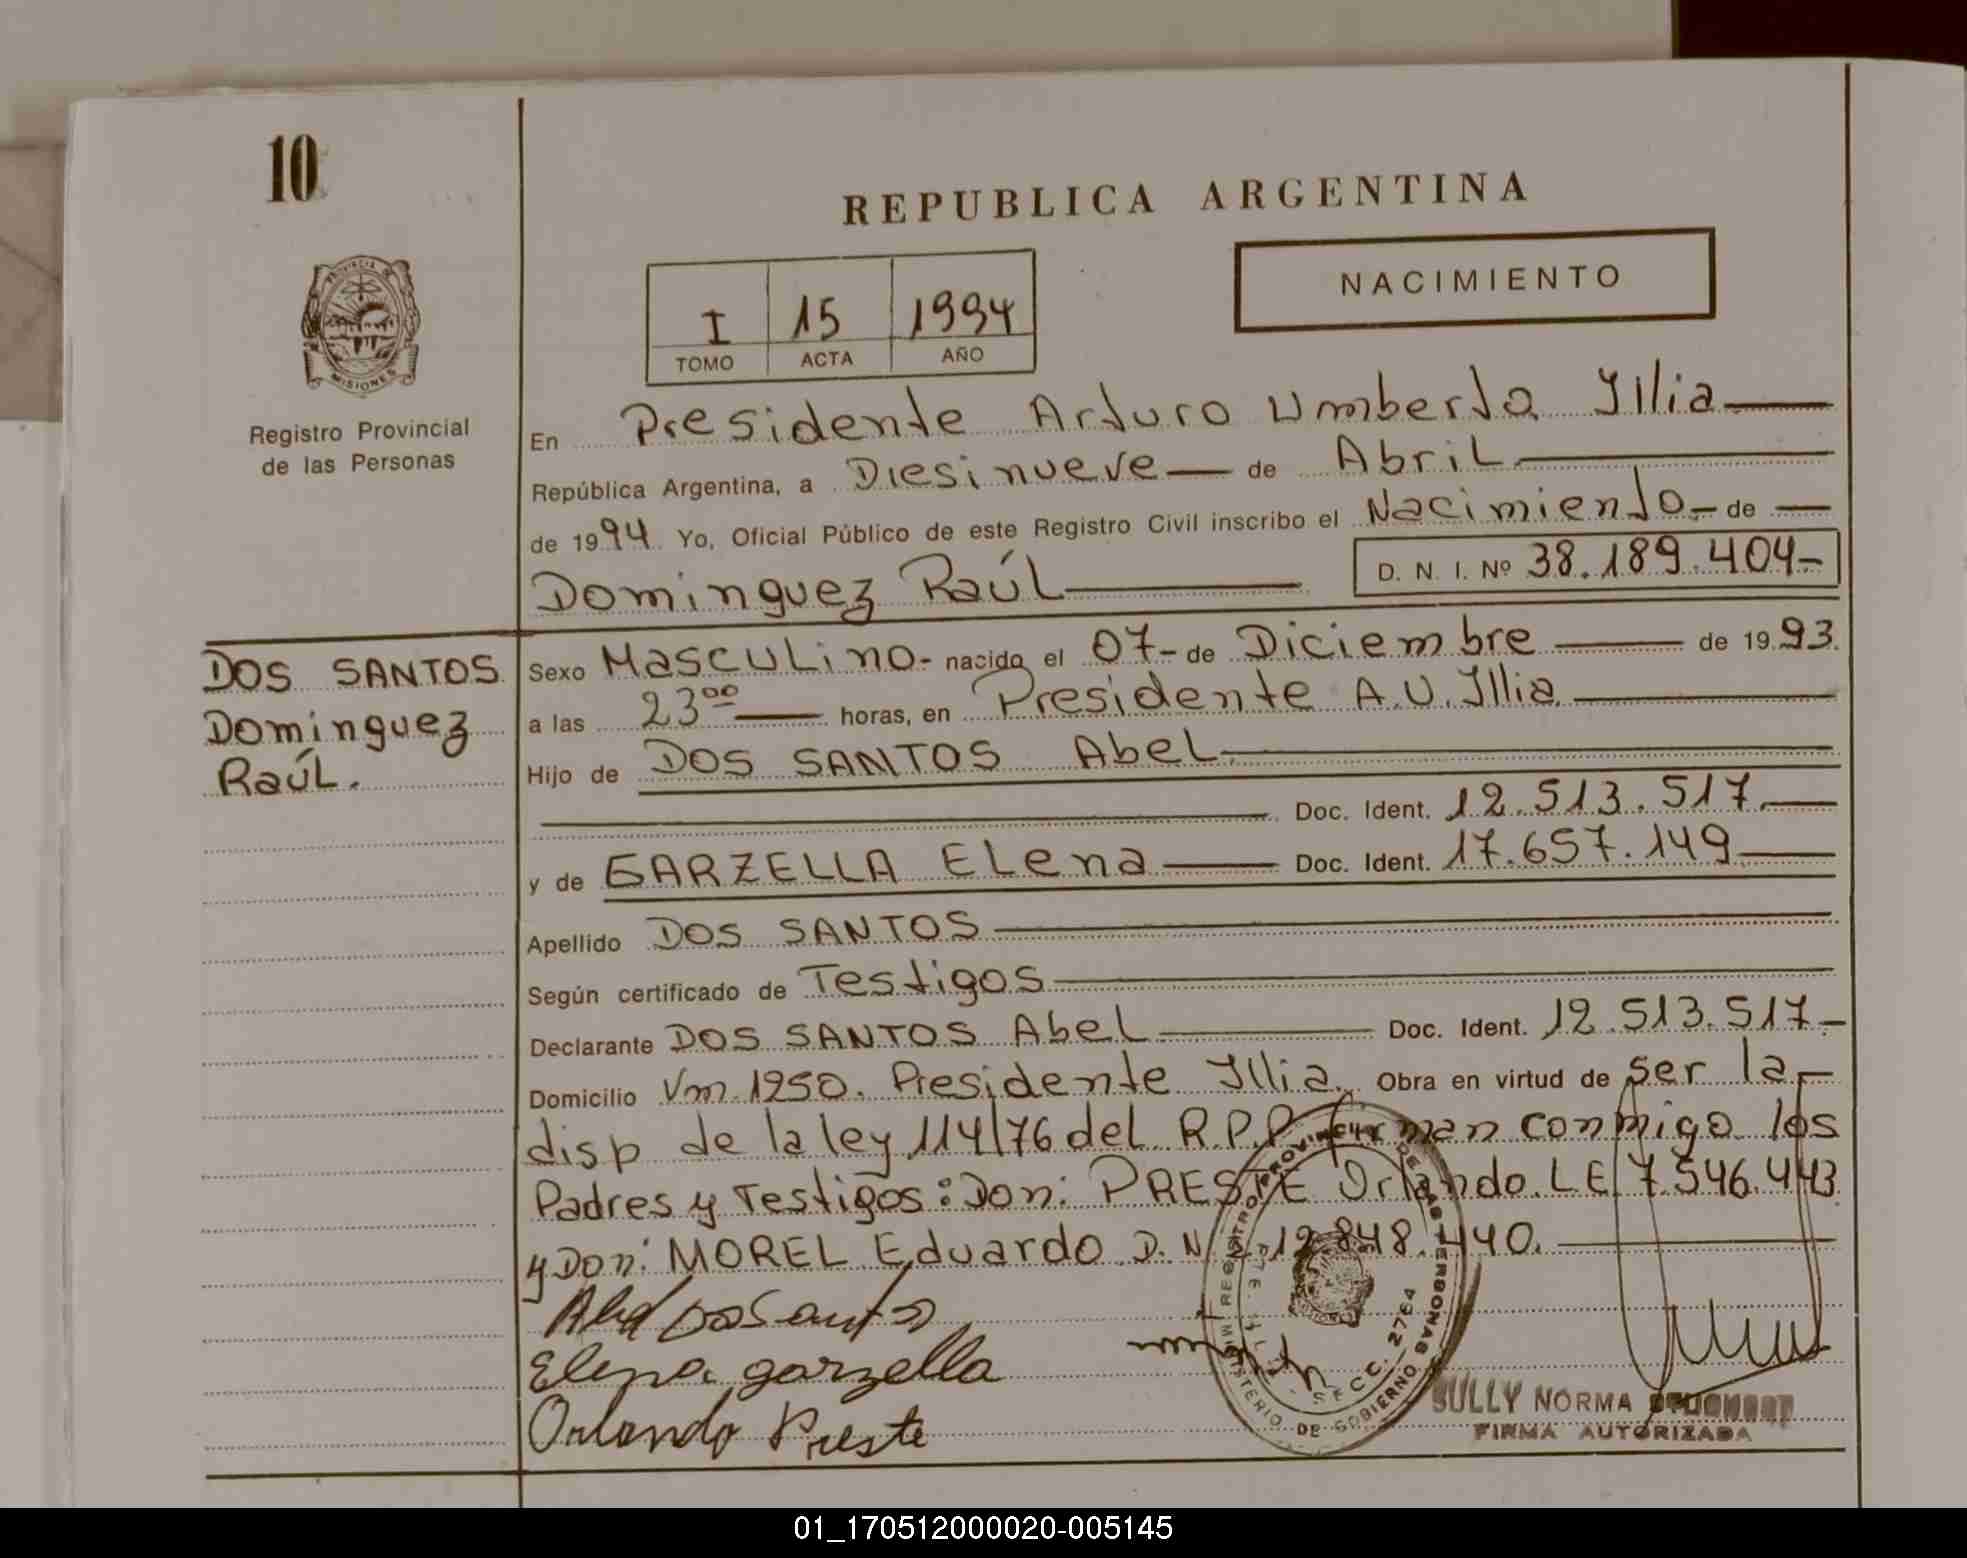 10
REPUBLICA ARGENTINA
NACIMIENTO
I 15 1994
TOMO ACTA AÑO
PROVINCIA DE MISIONES
Registro Provincial
de las Personas
En Presidente Arturo Umberto Illia
República Argentina, a Diesinueve de Abril
de 1994 Yo, Oficial Público de este Registro Civil inscribo el Nacimiento.- de
Dominguez Raúl D. N. I. Nº 38.189.404-
DOS SANTOS
Dominguez
Raúl.
Sexo Masculino- nacido el 07- de Diciembre de 1993.
a las 23⁰⁰ horas, en Presidente A.U. Illia
Hijo de DOS SANTOS Abel
Doc. Ident. 12.513.517.
y de GARZELLA Elena Doc. Ident. 17.657.149
Apellido DOS SANTOS
Según certificado de Testigos
Declarante DOS SANTOS Abel Doc. Ident. 12.513.517.-
Domicilio Vm. 1250. Presidente Illia. Obra en virtud de ser la
disp de la ley 114/76 del R.P.P. firman conmigo los
Padres y Testigos: Don: PRESTE Orlando. LE 7.546.443
y Don: MOREL Eduardo D.N.I. 12.848.440.
Abel Dos Santos
Elena garzella
Orlando Preste
MINISTERIO DE GOBIERNO
REGISTRO PROVINCIAL DE LAS PERSONAS
SECC. 2764
SULLY NORMA
FIRMA AUTORIZADA
01_170512000020-005145